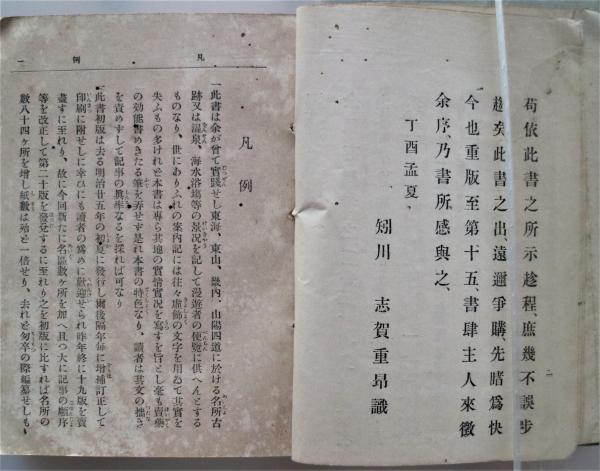 苟依此書之所示趁程、庶幾不誤步
趨矣此書之出、遠邇爭購、先睹爲快
今也重版至第十五、書肆主人來徵
余序、乃書所感與之、
丁酉孟夏、
矧川 志賀重昻識
二
凡例
一
凡例
一此書は余が曾て實踐せし東海、東山、畿内、山陽四道に於ける名所古
跡又は温泉、海水浴塲等の景况を記して漫遊者の便覽に供へんとする
ものなり、世にありふれの案内記には徃々虚飾の文字を用ゐて其實を
失ふもの多けれど本書は專ら其地の實情實况を寫すを旨とし毫も賣藥
の効能書めきたる筆を弄せず是れ本書の特色なり、讀者は其文の拙き
を責めずして記事の眞率なるを採れば可なり
一此書初版は去る明治廿五年の初夏に發行し爾後隔年毎に増補訂正して
印刷に附せしに幸ひにも讀者の爲めに歡迎せられ昨年終に十九版を賣
盡すに至れり、故に今回新たに名區數ヶ所を加へ且つ大に記事の順序
等を改正して第二十版を發兌するに至れり之を初版に比すれば名所の
數八十四ヶ所を増し紙數は殆ど一倍せり、去れど匆卒の際編纂せしもの